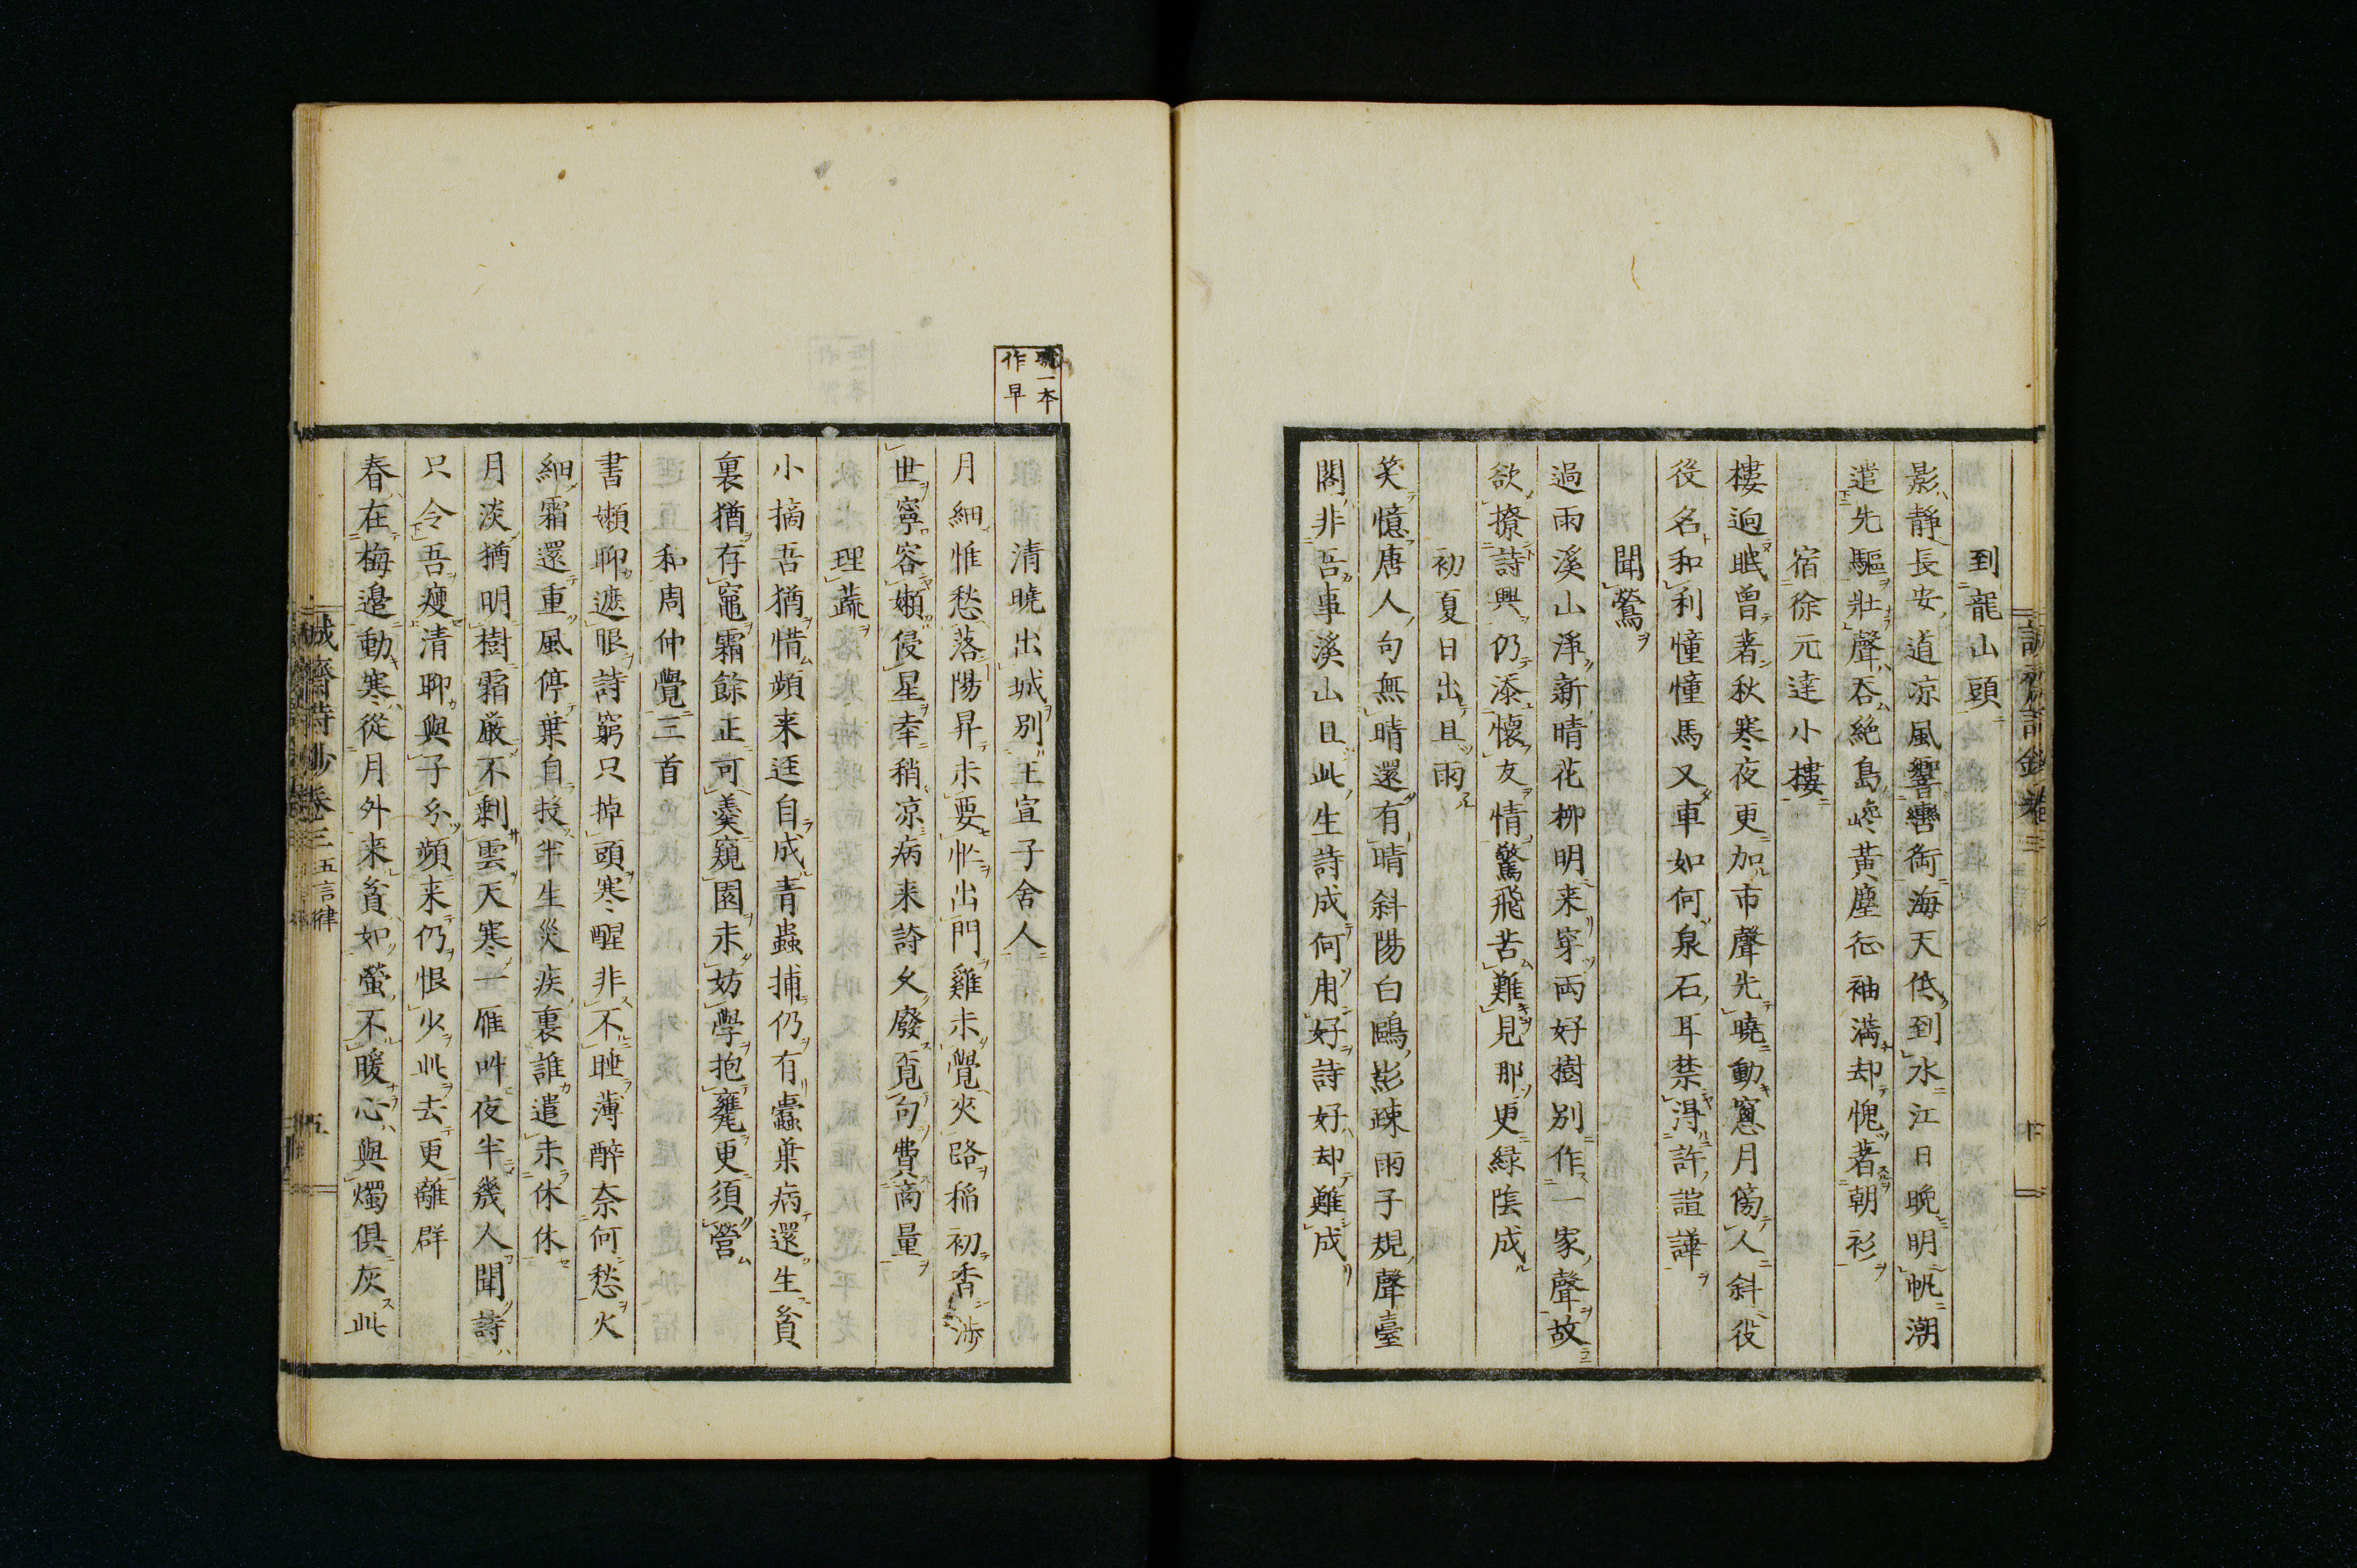 到龍山頭
影靜長安道涼風響轡銜海天低到水江日晚明帆潮
遣先驅壯聲吞絶島巉黃塵征袖滿却愧著朝衫
宿徐元達小樓
樓迥眠曾著秋寒夜更加市聲先曉動窻月傍人斜役
役名和利憧憧馬又車如何泉石耳禁得許諠譁
聞鶯
過雨溪山淨新晴花柳明来穿兩好樹別作一家聲故
欲撩詩興仍添懷友情驚飛苦難見那更緑陰成
初夏日出且雨
笑憶唐人句無晴還有晴斜陽白鷗影疎雨子規聲臺
閣非吾事溪山且此生詩成何用好詩好却難成
曉一本
作早
清曉出城別王宣子舍人
月細惟愁落陽昇未要忙出門雞未覺夾路稲初香渉
世寧容嬾侵星幸稍凉病来詩久廢覓句費商量
理蔬
小摘吾猶惜頻来逕自成青蟲捕仍有蠧葉病還生貧
裏猶存竈霜餘正可羹窺園未妨學抱甕更須營
和周仲覺三首
書嬾聊遮眼詩窮只掉頭寒醒非不睡薄醉奈何愁火
細霜還重風停葉自投半生災疾裏誰遣未休休
月淡猶明樹霜厳不剩雲天寒一雁叫夜半幾人聞詩
只令吾瘦清聊與子分頻来仍恨少此去更離群
春在梅邊動寒從月外来貧如螢不暖心與燭俱灰此
誠齋詩鈔卷三 五言律
五